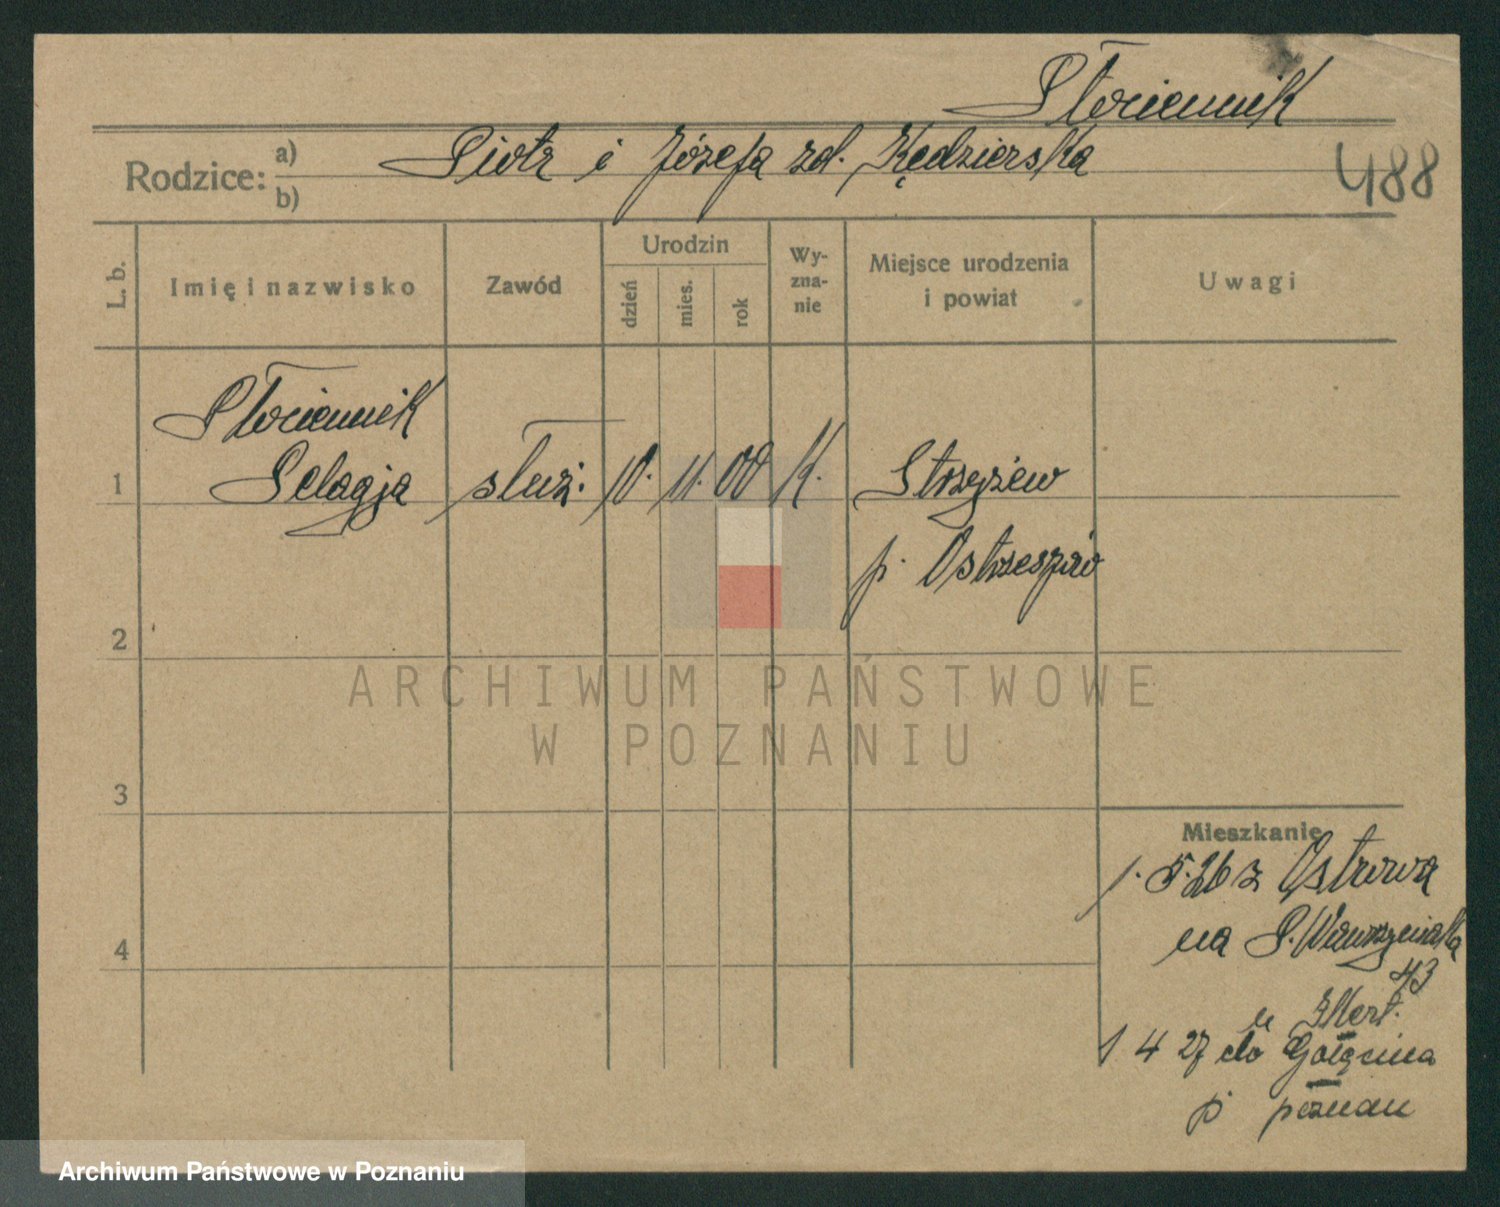 Płóciennik
Rodzice: a) b) Piotr i Józefa zd. Kędzierska
488
L. b.
Imię i nazwisko
Zawód
Urodzin
dzień
mies.
rok
Wy-
zna-
nie
Miejsce urodzenia
i powiat
Uwagi
Płóciennik
1 Pelagja służ. 10. 11. 00 K. Strzyżew
p. Ostrzeszów
2
ARCHIWUM PAŃSTWOWE
W POZNANIU
3
Mieszkanie
1. 5. 26 z Ostrowa
na P. Wawrzyniaka
4
43
u
1 4 27 do Gołęcina
p poznań
Archiwum Państwowe w Poznaniu